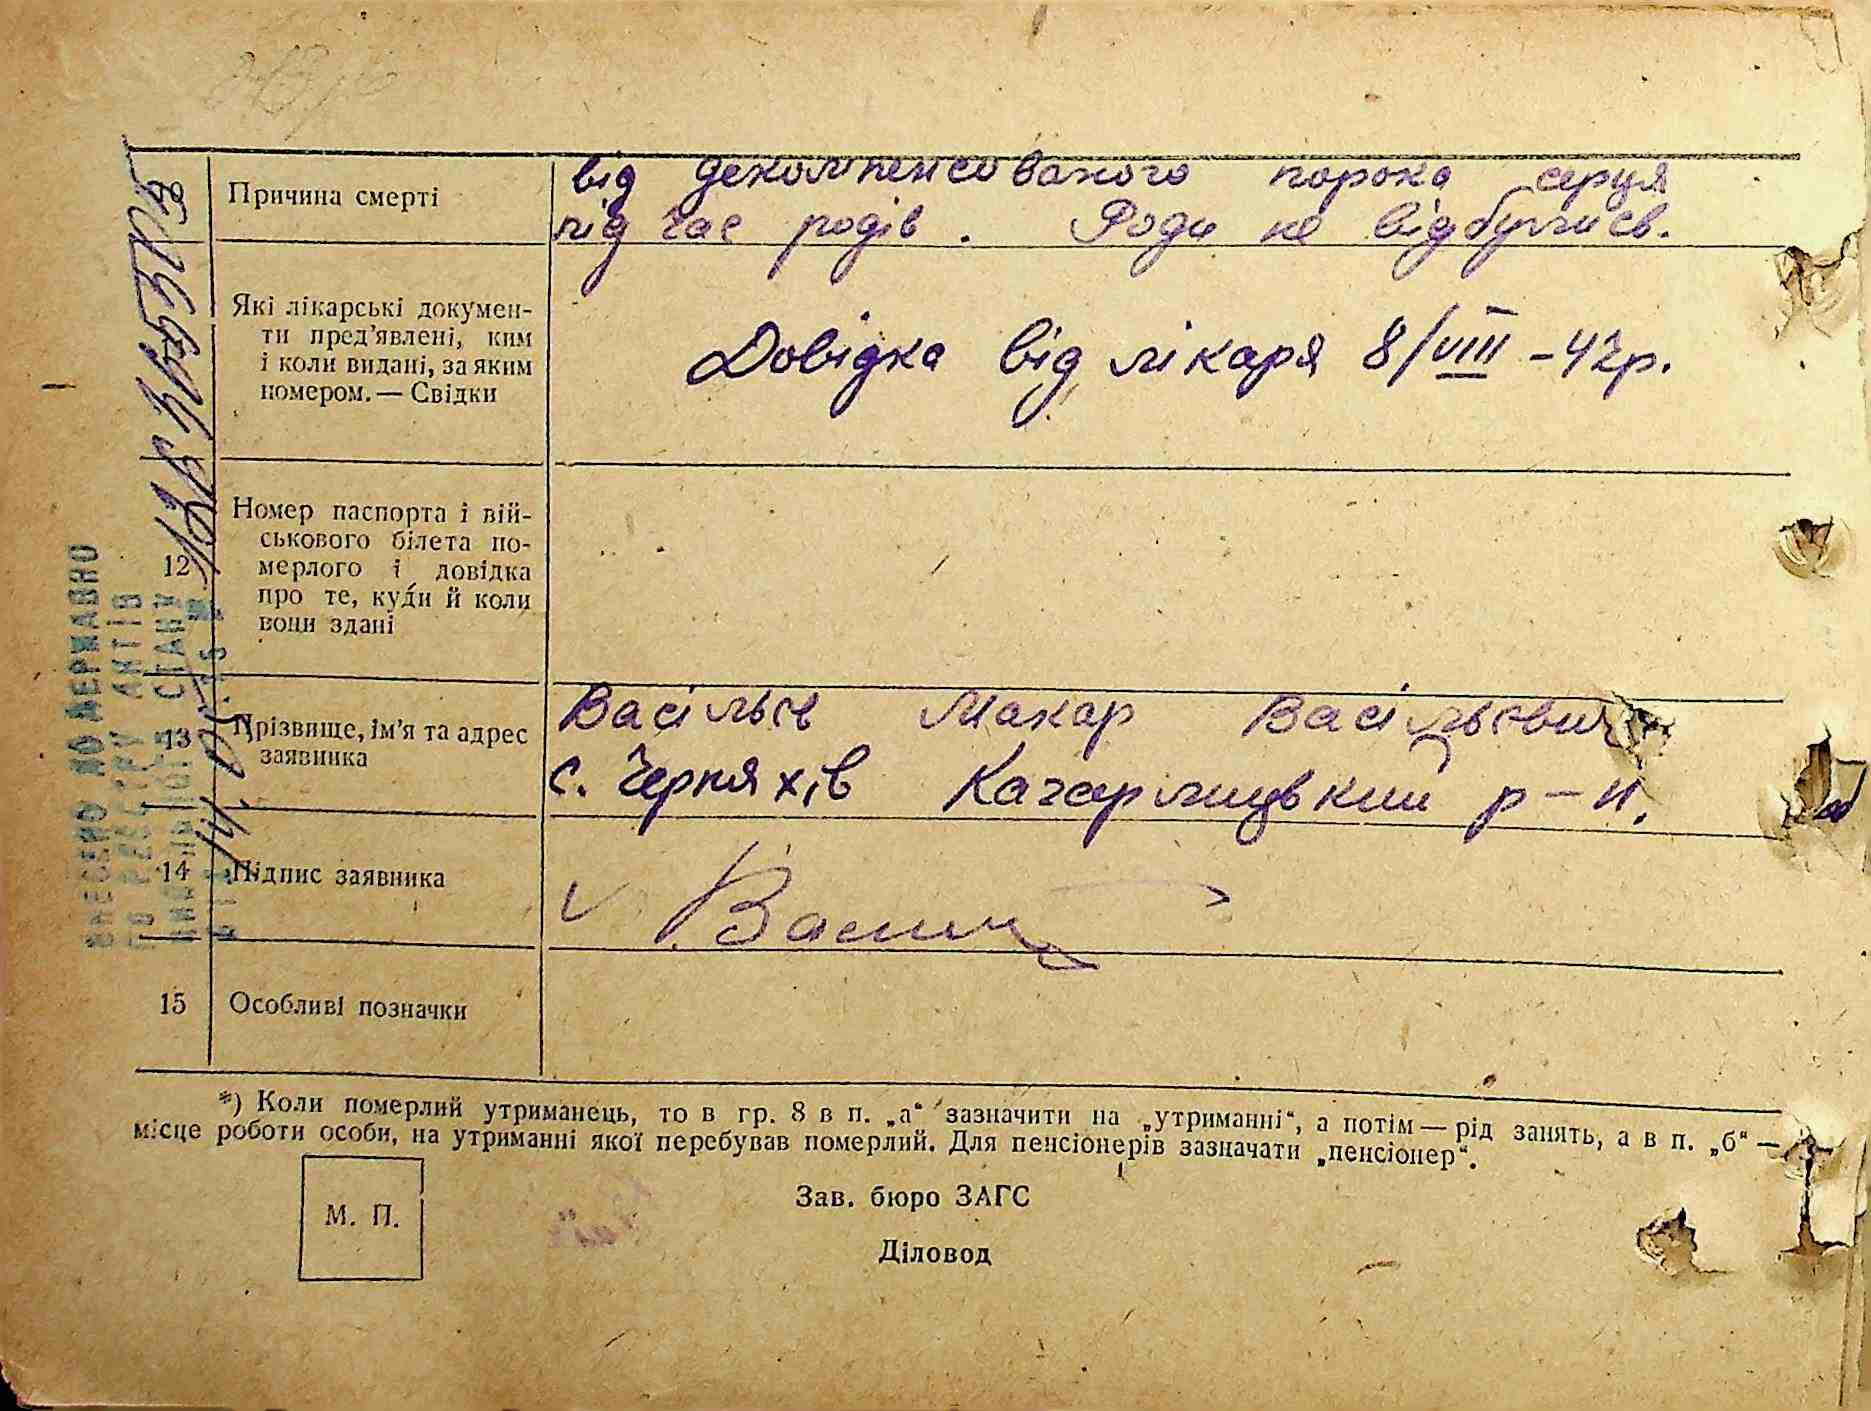 Причина смерті
від декомпенсованого порока серця
під час родів. Роди не відбулись.
Які лікарські докумен-
ти пред’явлені, ким
і коли видані, за яким
номером. — Свідки
Довідка від лікаря 8/VIII – 42р.
12
Номер паспорта і вій-
ськового білета по-
мерлого і довідка
про те, куди й коли
вони здані
13
Прізвище, ім’я та адрес
заявника
Васільєв Макар Васільєвич
с. Черняхів Кагарлицький р–н.
14
Підпис заявника
15
Особливі позначки
ВНЕСЕНО ДО ДЕРЖАВНО
ГО РЕЄСТРУ АКТІВ
СТАНУ
*) Коли померлий утриманець, то в гр. 8 в п. „а“ зазначити на „утриманні“, а потім — рід занять, а в п. „б“ —
місце роботи особи, на утриманні якої перебував померлий. Для пенсіонерів зазначати „пенсіонер“.
М. П.
Зав. бюро ЗАГС
Діловод